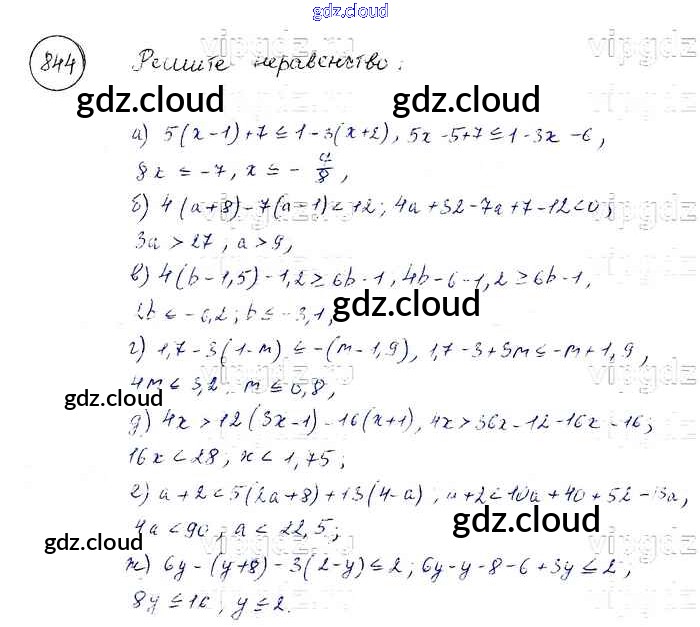 gdz.cloud
844 Решите неравенство:
vipgdz
gdz.cloud gdz.cloud
а) 5(x-1)+7≤1-3(x+2), 5x-5+7≤1-3x-6,
8x ≤ -7, x ≤ -7/8,
б) 4(a+8)-7(a-1)<12; 4a+32-7a+7-12<0;
vipgdz
3a > 27, a > 9,
в) 4(b-1,5)-1,2≥6b-1, 4b-6-1,2≥6b-1,
gdz.cloud
2b ≤ -6,2; b ≤ -3,1,
г) 1,7-3(1-m)≤-(m-1,9), 1,7-3+3m≤-m+1,9,
vipgdz
4m ≤ 3,2 m ≤ 0,8,
gdz.cloud
д) 4x>12(3x-1)-16(x+1), 4x>36x-12-16x-16;
16x < 28, x < 1,75;
е) a+2<5(2a+8)+13(4-a), a+2<10a+40+52-13a,
gdz.cloud
4a<90, a < 22,5;
gdz.cloud
vipgdz
ж) 6y-(y+8)-3(2-y)≤2; 6y-y-8-6+3y≤2;
8y ≤ 16, y ≤ 2.